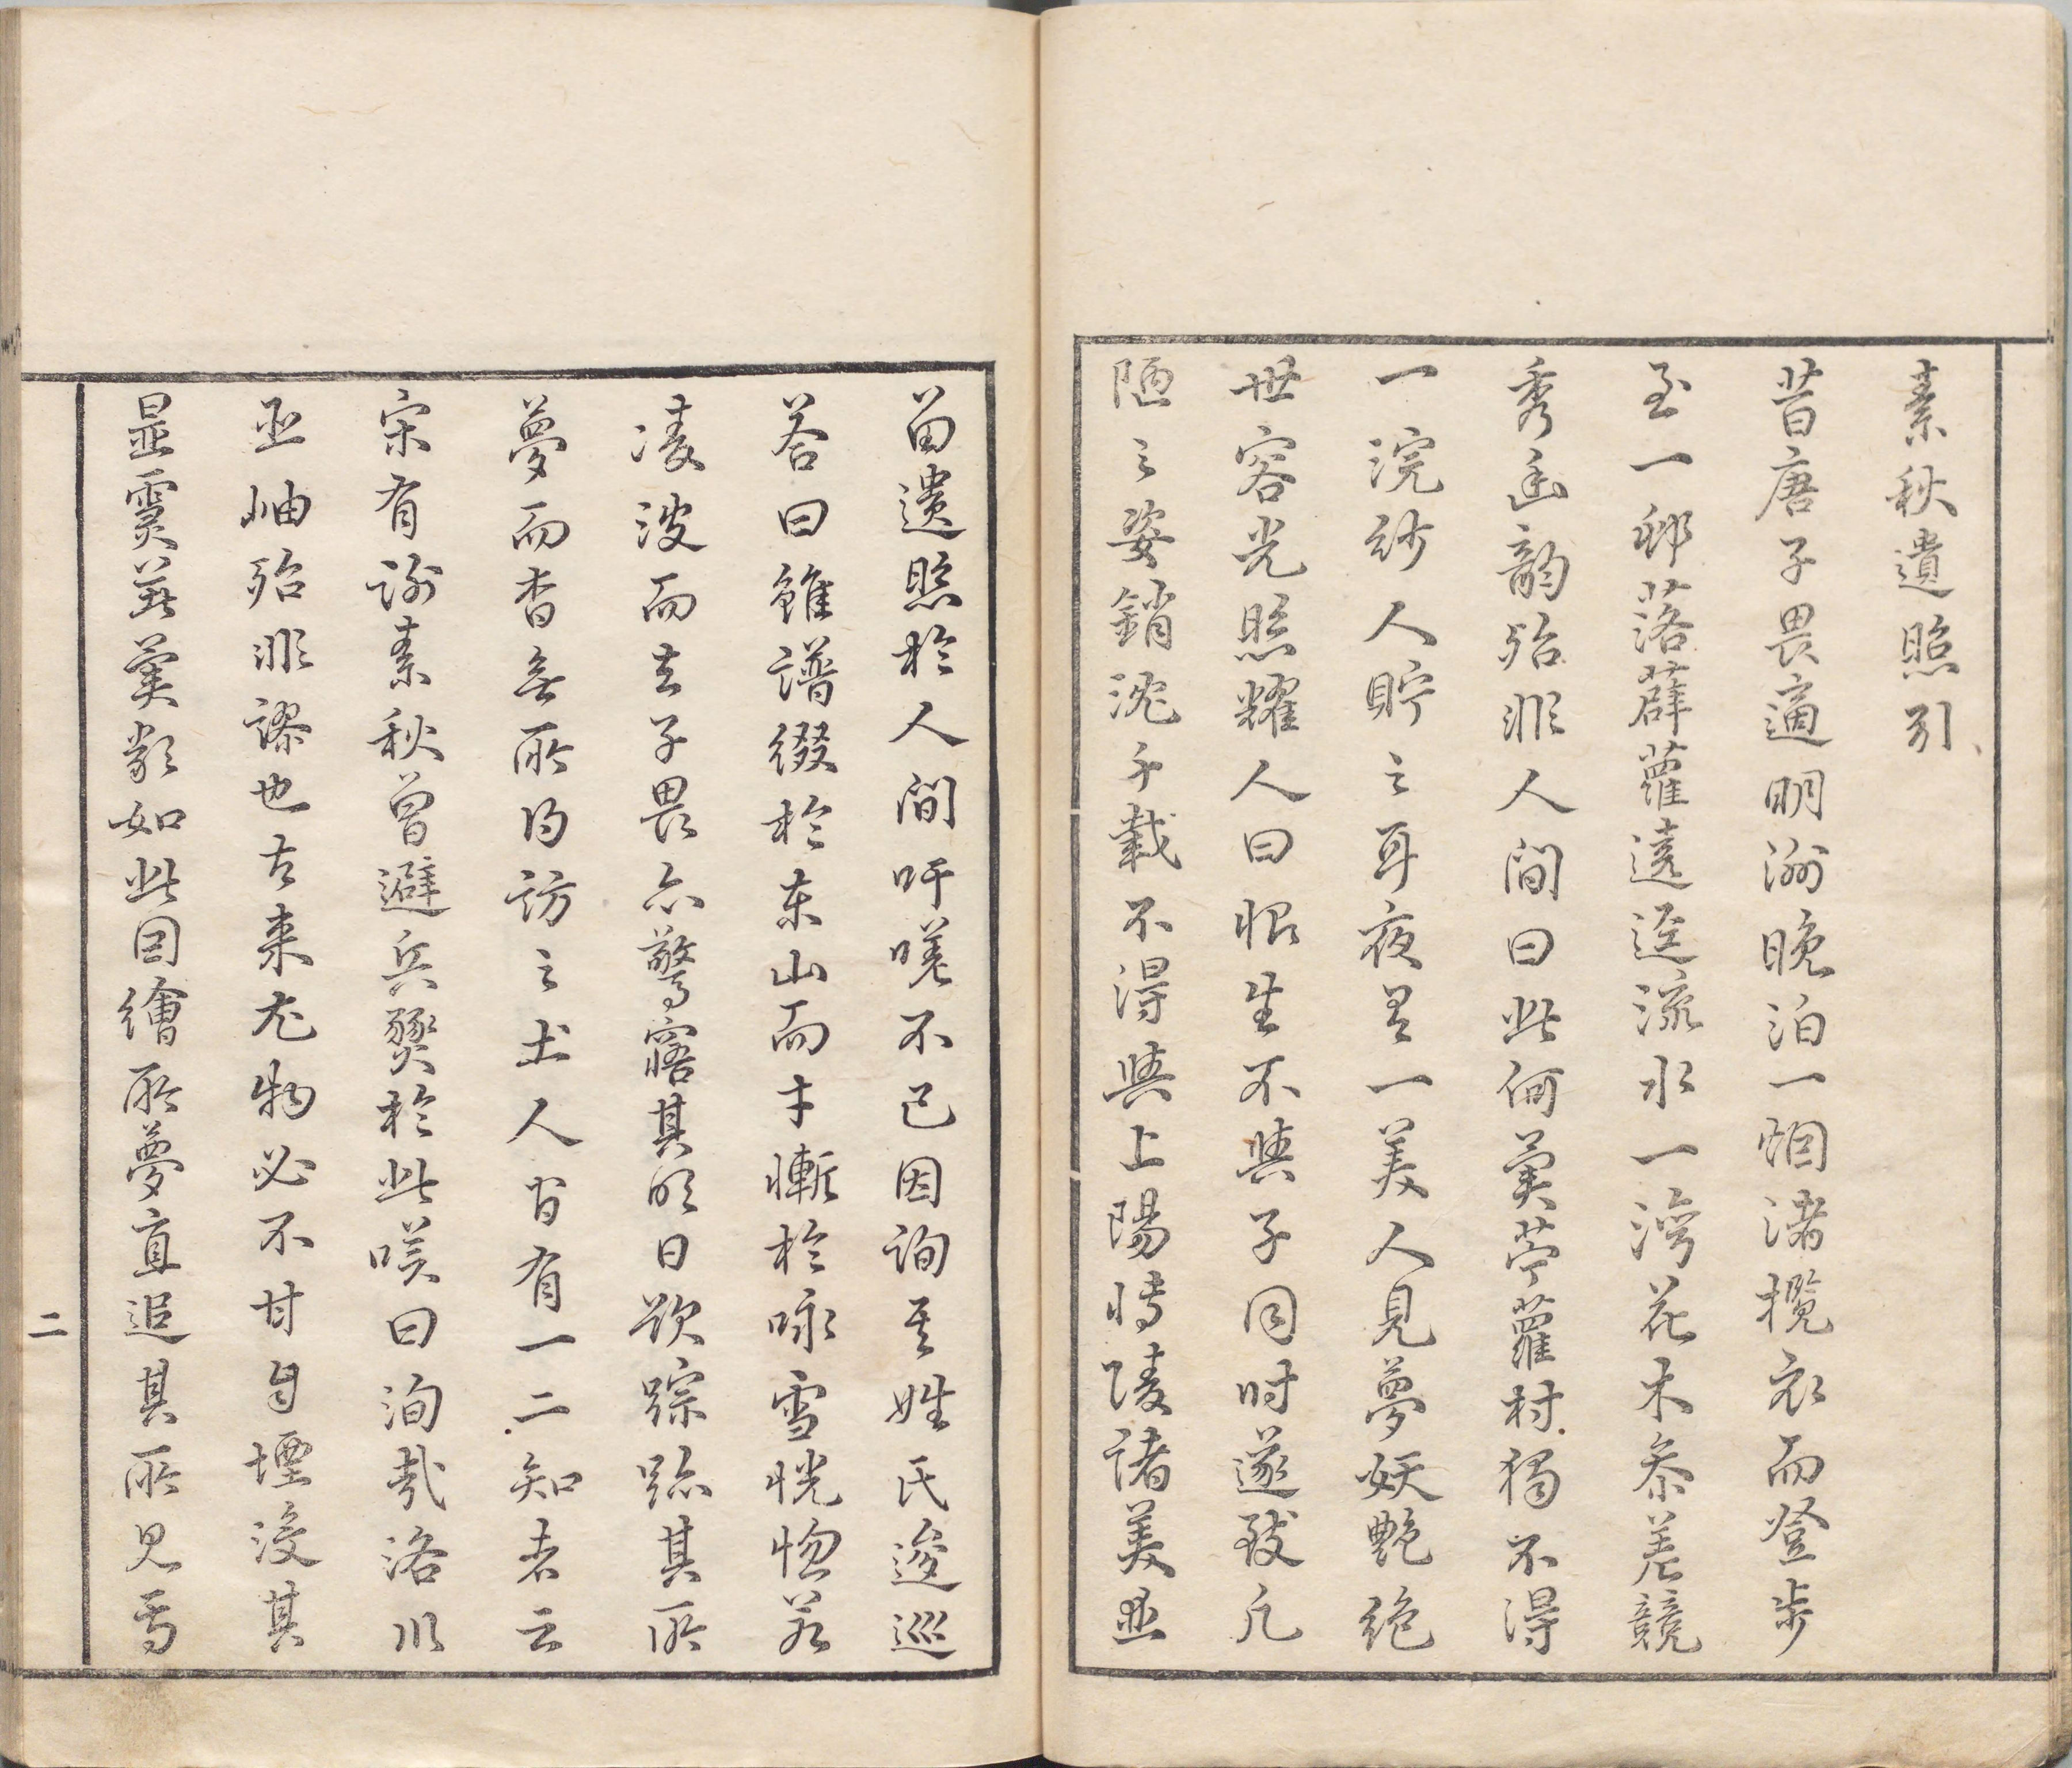 素秋遺照引
昔唐子畏適明洲晚泊一烟渚攬衣而登步
至一邨落薜蘿遶逕流水一灣花木參差競
秀幽韻殆非人間曰此何異苧蘿村獨不得
一浣紗人貯之耳夜果一美人見夢妖艷絕
世容光照耀人曰恨生不與子同时遂致凡
陋之姿銷沈千載不得與上陽博陵諸美並
留遺照於人間吁嗟不已因詢其姓氏逡巡
答曰雖譜綴於東山而才慚於咏雪恍惚若
凌波而去子畏亦驚寤其明日欲踪跡其所
夢而杳無所得訪之土人間有一二知者云
宋有謝素秋曾避兵燹於此嘆曰洵哉洛川
巫岫殆非謬也古來尤物必不甘自堙沒其
是靈異類如此因繪所夢直追其所見焉
二